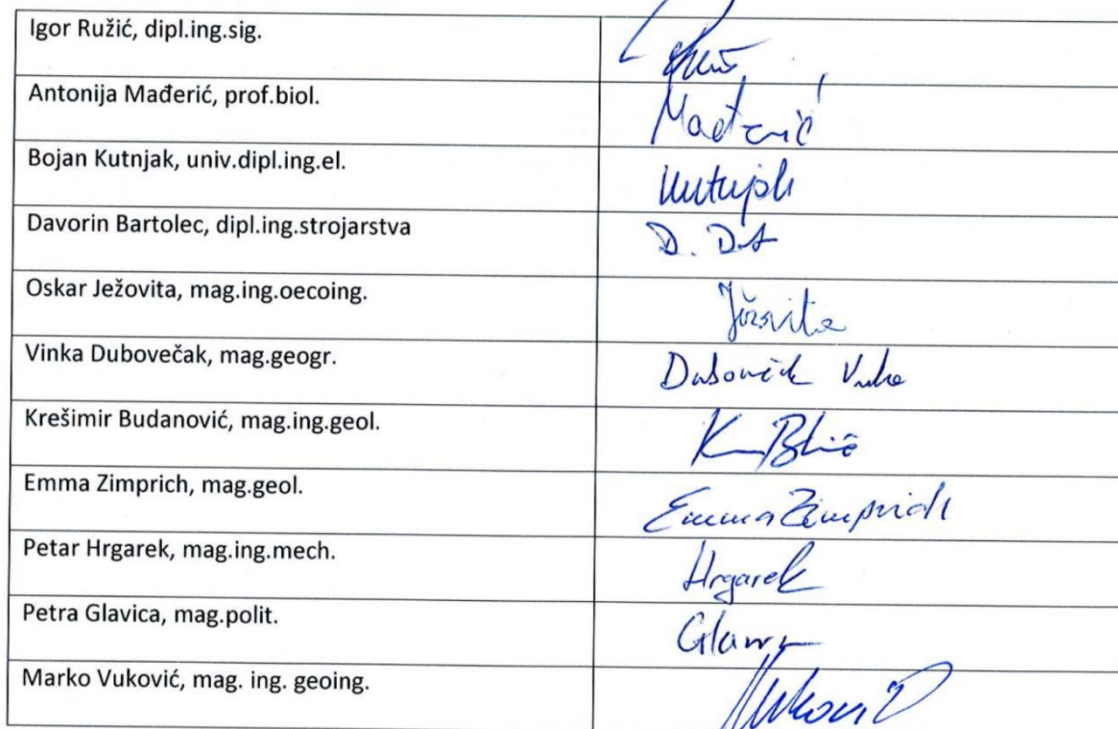 Igor Ružić, dipl.ing.sig.
Antonija Mađerić, prof.biol.
Mađerić
Bojan Kutnjak, univ.dipl.ing.el.
Kutnjak
Davorin Bartolec, dipl.ing.strojarstva
Oskar Ježovita, mag.ing.oecoing.
Ježovita
Vinka Dubovečak, mag.geogr.
Dubovečak Vinka
Krešimir Budanović, mag.ing.geol.
Emma Zimprich, mag.geol.
Emma Zimprich
Petar Hrgarek, mag.ing.mech.
Hrgarek
Petra Glavica, mag.polit.
Marko Vuković, mag. ing. geoing.
Vuković